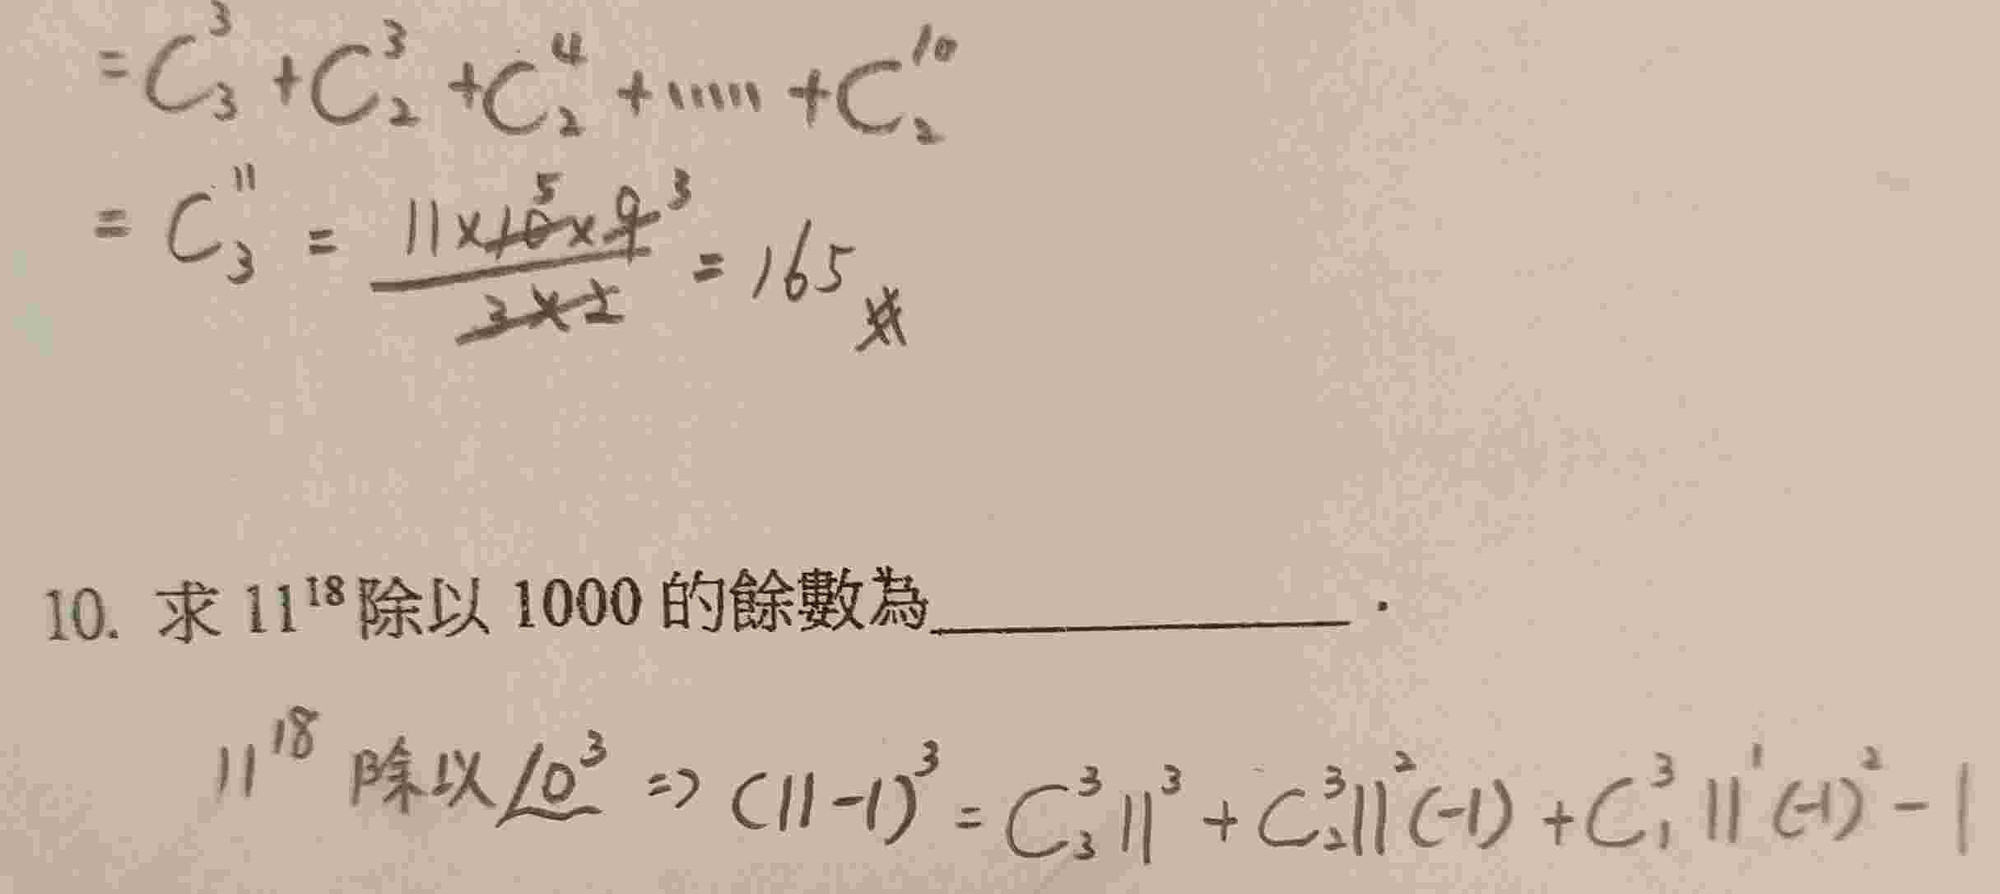 = C³₃ + C³₂ + C⁴₂ + ...... + C¹⁰₂
= C¹¹₃ = 11×10×9 / 3×2 = 165 5 3
10. 求 11¹⁸ 除以 1000 的餘數為__________.
11¹⁸ 除以 10³ => (11-1)³ = C³₃ 11³ + C³₂ 11² (-1) + C³₁ 11¹ (-1)² - 1